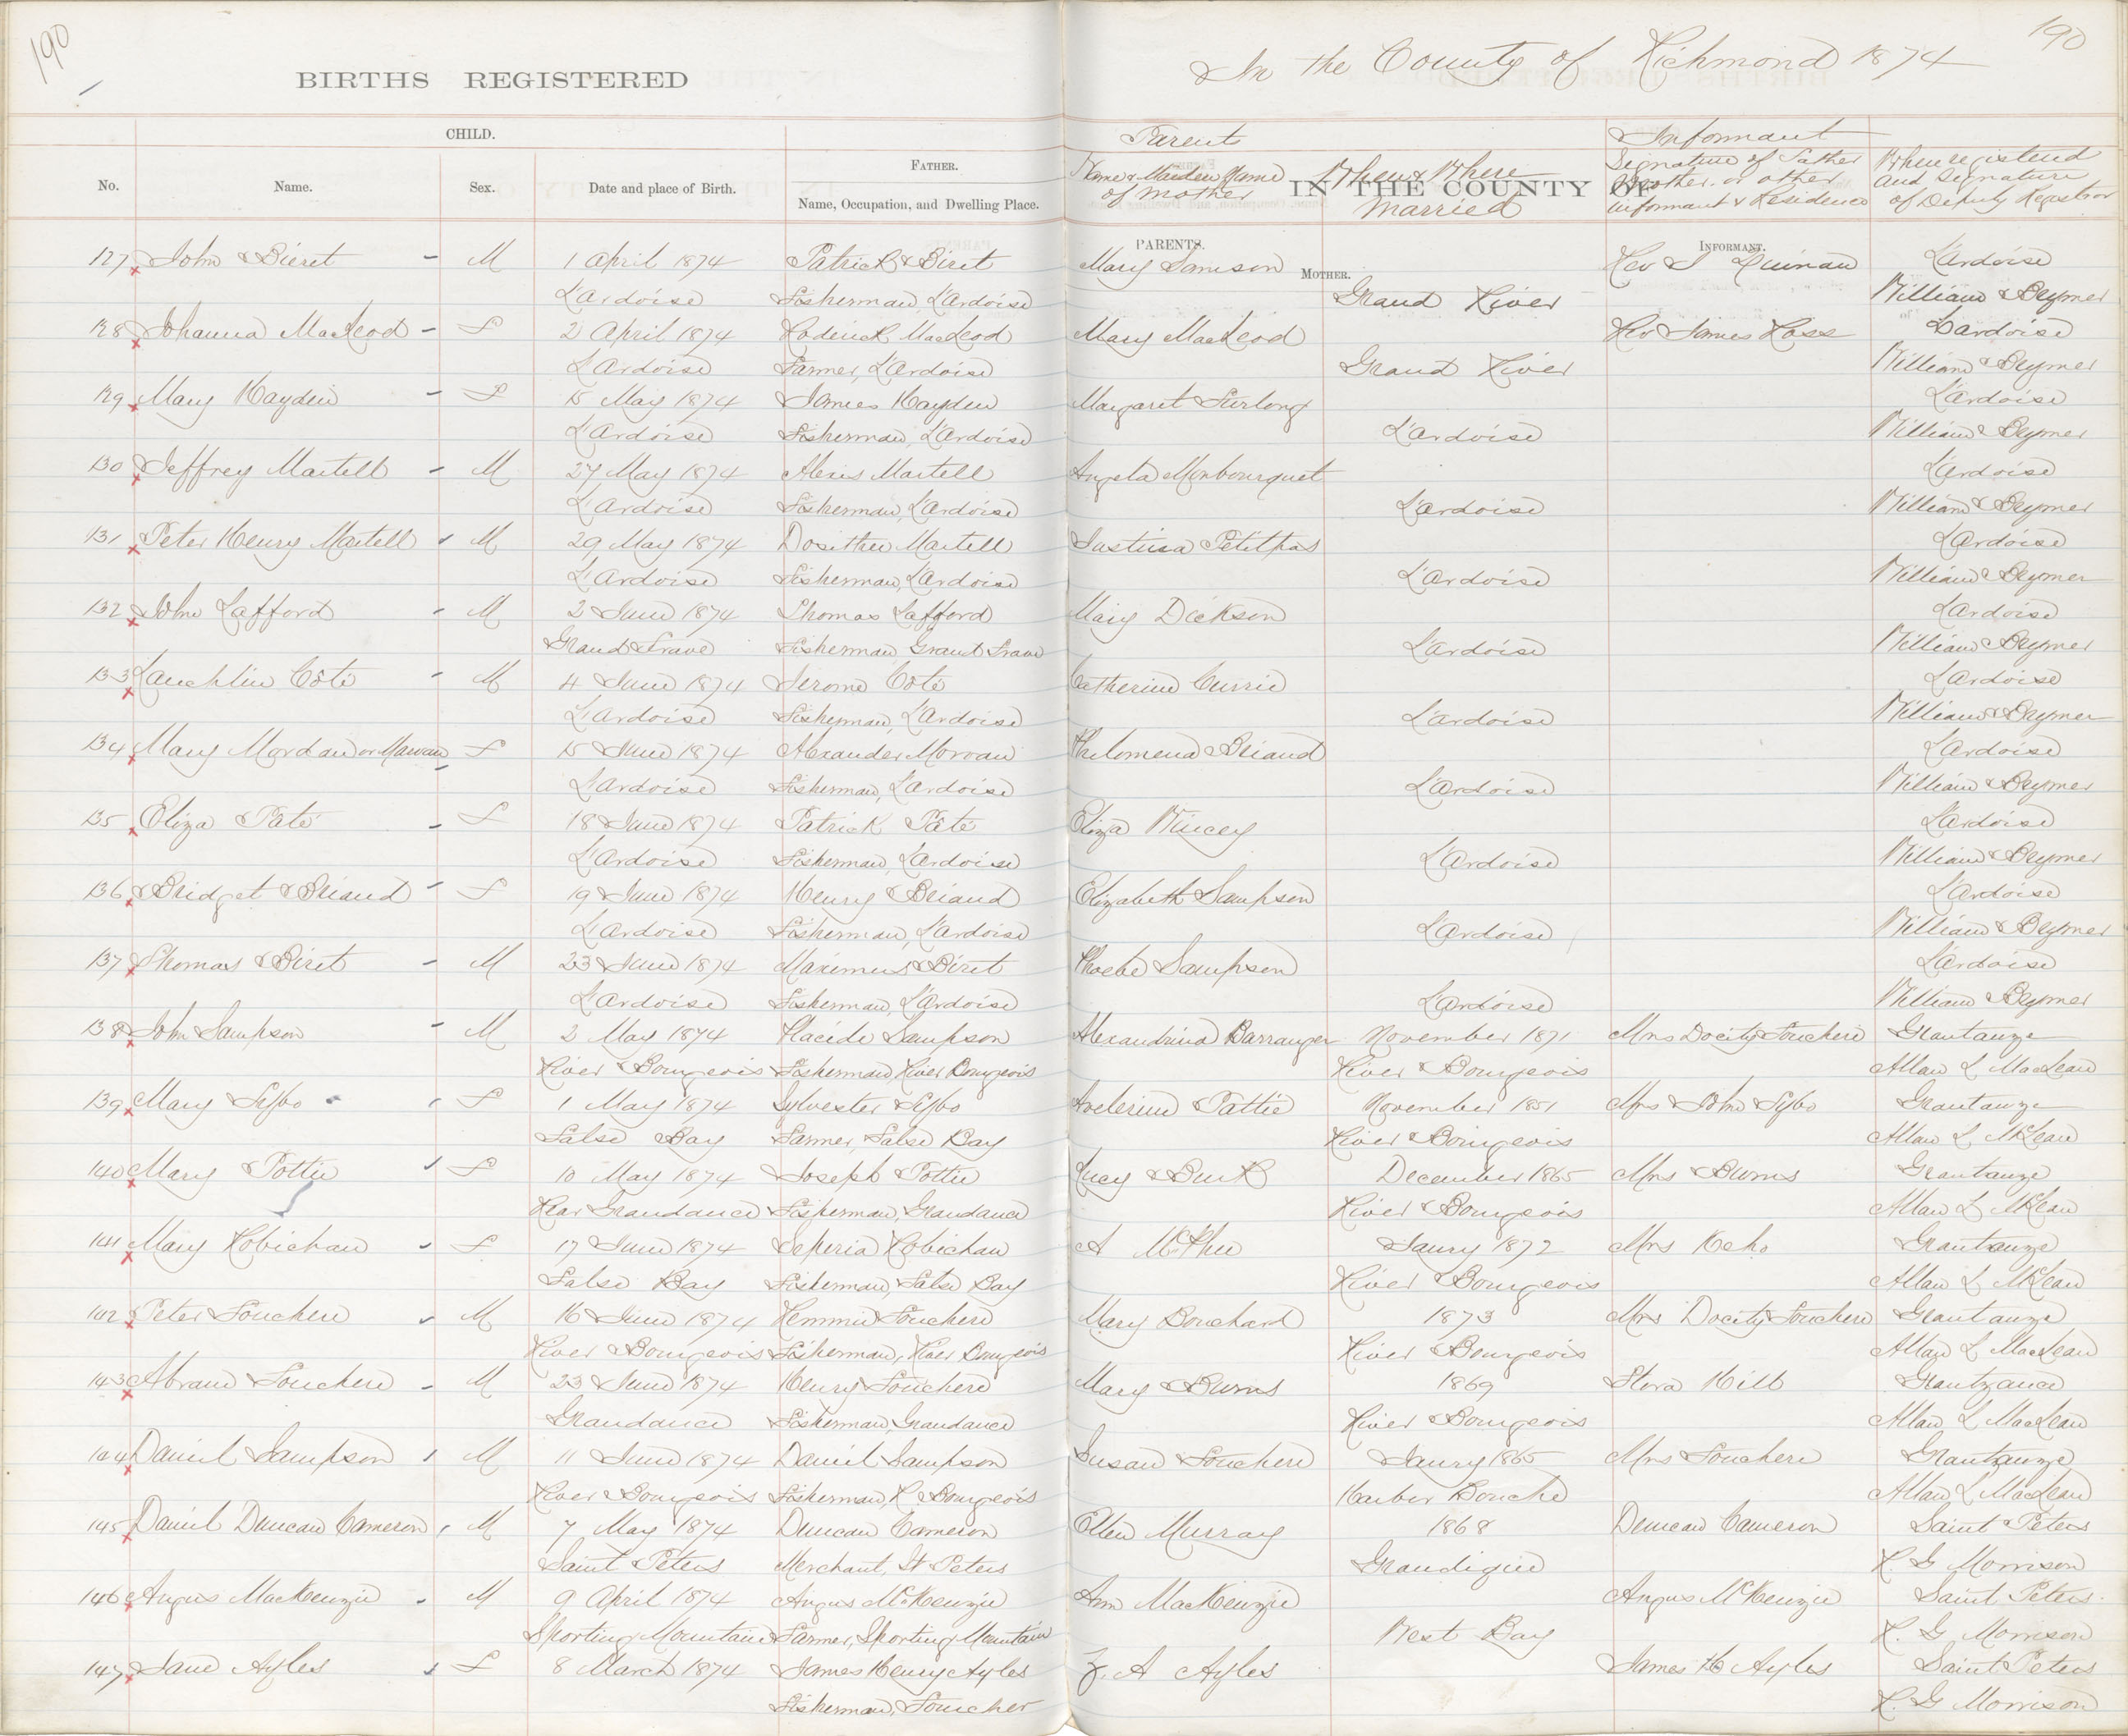 190
190
BIRTHS REGISTERED
In the County of Richmond 1874
IN THE COUNTY OF
CHILD.
Parent
Informant
No. Name. Sex. Date and place of Birth.
FATHER.
Name, Occupation, and Dwelling Place.
Name & Maiden Name of Mother
When & Where Married
Signature of Father Mother or other informant & Residence
When registered and Signature of Deputy Registrar
PARENTS.
MOTHER.
INFORMANT.
127 John Bieret - M 1 April 1874 Patrick Biret Mary Samson Rev J Quinan L'ardoise
L'Ardoise Fisherman, L'Ardoise Grand River William Brymer
128 Johanna MacLeod - F 2 April 1874 Roderick MacLeod Mary MacLeod Rev James Ross Lardoise
L'Ardoise Farmer, L'Ardoise Grand River William Brymer
129 Mary Hayden - F 15 May 1874 James Hayden Margaret Furlong L'ardoise
L'Ardoise Fisherman, L'Ardoise L'Ardoise William Brymer
130 Jeffrey Martell - M 27 May 1874 Alexis Martell Angela Monbourquet L'ardoise
L'Ardoise Fisherman, L'Ardoise L'ardoise William Brymer
131 Peter Henry Martell M 29 May 1874 Dosithee Martell Justina Petitpas L'Ardoise
L'Ardoise Fisherman, L'Ardoise L'Ardoise William Brymer
132 John Lafford - M 2 June 1874 Thomas Lafford Mary Dickson L'ardoise
Grand Grave Fisherman, Grand Grave L'ardoise William Brymer
133 Lauchlin Côté - M 4 June 1874 Jerome Coté Catherine Currie L'Ardoise
L'Ardoise Fisherman, L'Ardoise L'ardoise William Brymer
134 Mary Mordan or Marvan F 15 June 1874 Alexander Morvan Philomena Briand L'Ardoise
L'ardoise Fisherman, L'Ardoise L'Ardoise William Brymer
135 Eliza Paté - F 18 June 1874 Patrick Pâté Eliza Kincey L'ardoise
L'Ardoise Fisherman, L'ardoise L'Ardoise William Brymer
136 Bridget Briand - F 19 June 1874 Henry Briand Elizabeth Sampson L'Ardoise
L'Ardoise Fisherman, L'Ardoise L'Ardoise William Brymer
137 Thomas Biret - M 23 June 1874 Maximus Biret Phoebe Sampson L'ardoise
L'Ardoise Fisherman, L'Ardoise L'Ardoise William Brymer
138 John Sampson - M 2 May 1874 Placide Sampson Alexandrina Barranger November 1871 Mrs Docity Fouchere Grantauze
River Bourgeois Fisherman, River Bourgeois River Bourgeois Allan L MacLean
139 Mary F 1 May 1874 Sylvester Pattie November 1851 Mrs John Grantauze
False Bay Farmer, False Bay River Bourgeois Allan L McLean
140 Mary Pottie F 10 May 1874 Joseph Pottie Lucy Burk December 1865 Mrs Burns Grantauze
Rear Grandance Fisherman, Grandance River Bourgeois Allan L McLean
141 Mary Robichau F 17 June 1874 Robichau A McPhee Janry 1872 Mrs Keho Grantauze
False Bay Fisherman, False Bay River Bourgeois Allan L McLean
142 Peter Fouchere M 16 June 1874 Remmie Fouchere Mary Bouchard 1873 Mrs Docity Fouchere Grantauze
River Bourgeois Fisherman, River Bourgeois River Bourgeois Allan L MacLean
143 Abram Fouchere - M 23 June 1874 Henry Fouchere Mary Burns 1869 Flora Hill Grantzance
Grandance Fisherman, Grandance River Bourgeois Allan L MacLean
144 Daniel Sampson M 11 June 1874 Daniel Sampson Susan Fouchere Janry 1865 Mrs Fouchere Grantauze
River Bourgeois Fisherman, R. Bourgeois Harbor Bouché Allan L MacLean
145 Daniel Duncan Cameron M 7 May 1874 Duncan Cameron Ellen Murray 1868 Duncan Cameron Saint Peters
Saint Peters Merchant, St Peters Grandique R. G Morrison
146 Angus MacKenzie - M 9 April 1874 Angus McKenzie Ann MacKenzie Angus McKenzie Saint Peters
Sporting Mountain Farmer, Sporting Mountain West Bay R. G Morrison
147 Jane Ayles F 8 March 1874 James Henry Ayles Z. A Ayles James H Ayles Saint Peters
Fisherman, Foucher R. G Morrison